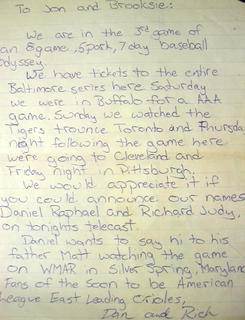 To Jon and Brooksie:
We are in the 3rd game of
an 8game, 5park, 7day baseball
odyssey.
We have tickets to the entire
Baltimore series here. Saturday
we were in Buffalo for a AAA
game. Sunday we watched the
Tigers trounce Toronto and Thursday
night following the game here
were going to Cleveland and
Friday night in Pittsburgh.
We would appreciate it if
you could announce our names
Daniel Raphael and Richard Judy,
on tonights telecast.
Daniel wants to say hi to his
father Matt watching the game
on WMAR in Silver Spring, Maryland
Fans of the Soon to be American
League East Leading Orioles,
Dan and Rich